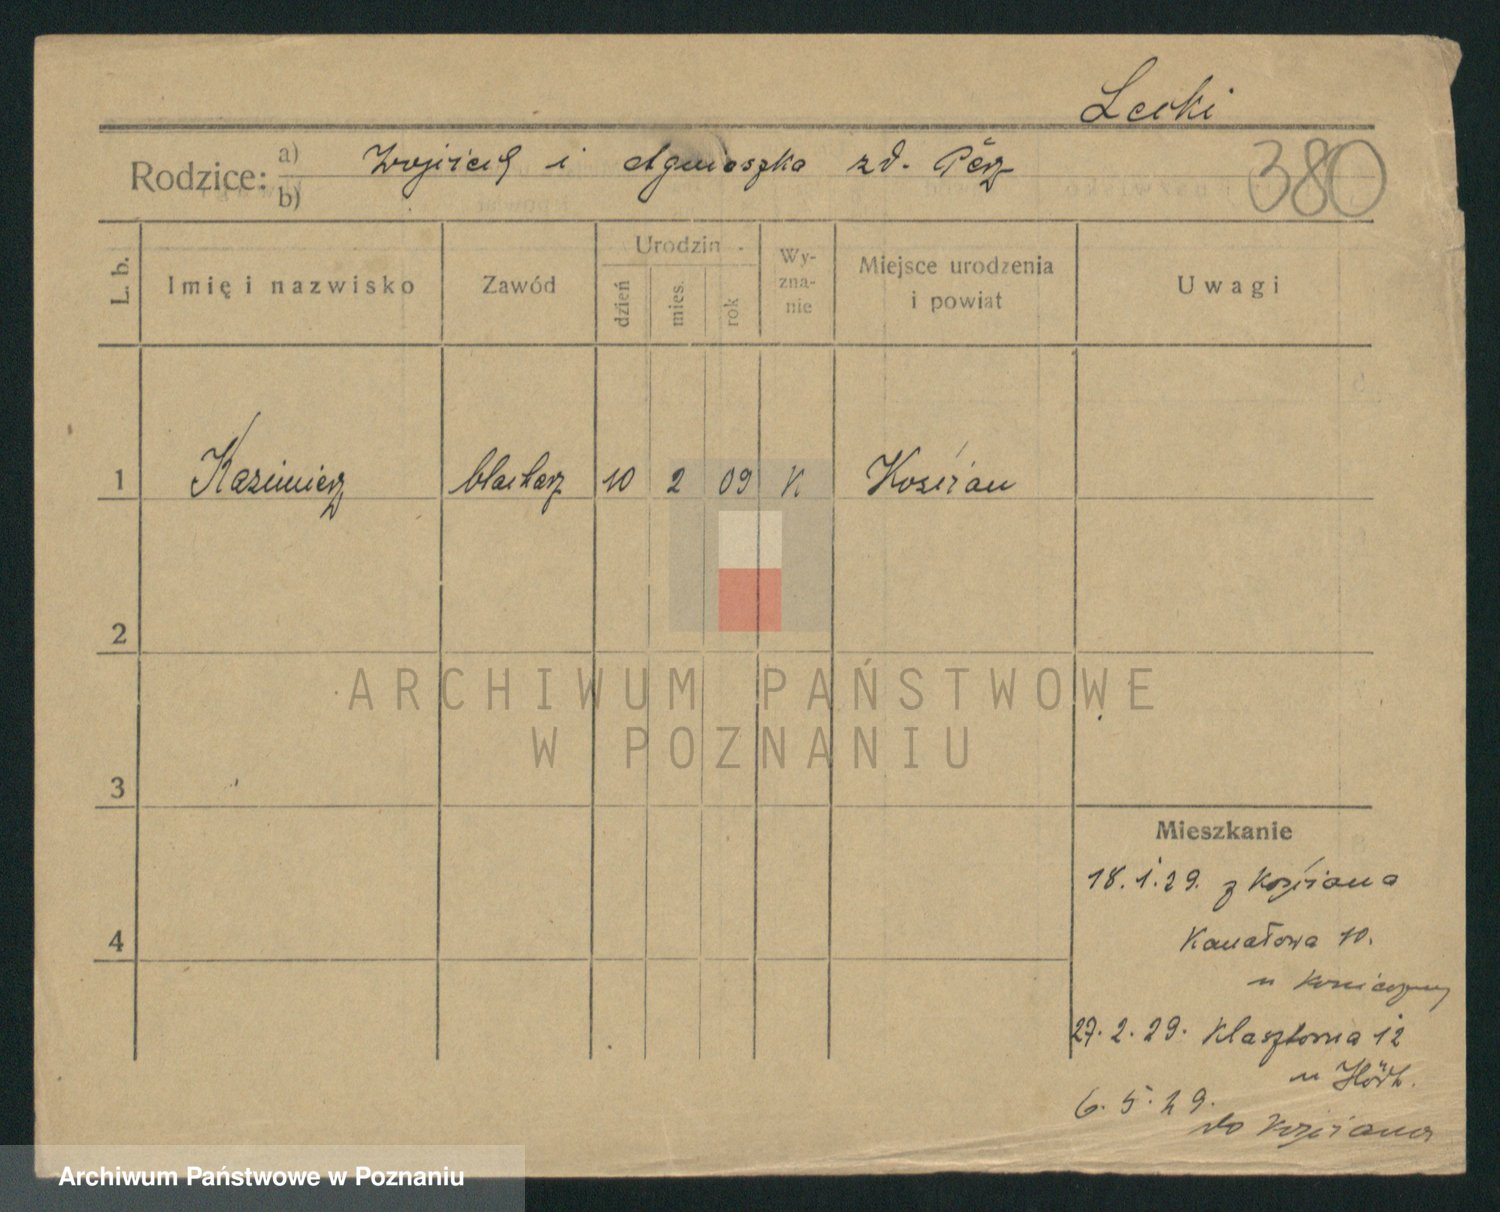 Lecki
380
Rodzice: a) Wojciech i Agnieszka zd.
b)
L. b.
Imię i nazwisko
Zawód
Urodzin
dzień
mies.
rok
Wy-
zna-
nie
Miejsce urodzenia
i powiat
Uwagi
1 Kazimierz blacharz 10 2 09 K Kościan
2
3
4
Mieszkanie
18.1.29. z Kościana
Kanałowa 10.
u
27.2.29. Klasztorna 12
u
6.5.29.
do Kościana
ARCHIWUM PAŃSTWOWE
W POZNANIU
Archiwum Państwowe w Poznaniu